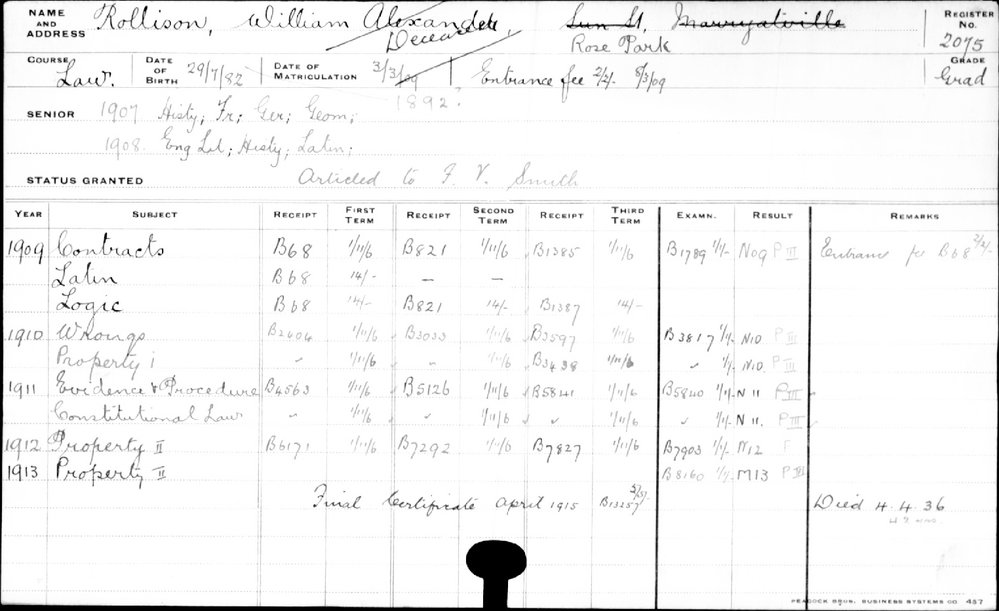 NAME AND ADDRESS Rollison, William Alexander, Sun St, Marryatville REGISTER No. 2075
Deceased Rose Park
COURSE Law. DATE OF BIRTH 29/7/82 DATE OF MATRICULATION 3/3/09 Entrance fee 2/2/- 8/3/09 GRADE Grad
1892.
SENIOR 1907 Histy; Fr; Ger; Geom;
1908. Eng Lit; Histy; Latin;
STATUS GRANTED Articled to F. V. Smith
YEAR SUBJECT RECEIPT FIRST TERM RECEIPT SECOND TERM RECEIPT THIRD TERM EXAMN. RESULT REMARKS
1909 Contracts B68 1/11/6 B821 1/11/6 B1385 1/11/6 B1789 1/1/- No9 P III Entrance fee B68 2/2/-
Latin B68 14/- — —
Logic B68 14/- B821 14/- B1387 14/-
1910 Wrongs B2404 1/11/6 B3033 1/11/6 B3597 1/11/6 B3817 1/1/- N10 P III
Property i " 1/11/6 — 1/11/6 B3438 1/11/6 " 1/1/- N10. P III
1911 Evidence & Procedure B4563 1/11/6 B5126 1/11/6 B5841 1/11/6 B5840 1/1/- N 11 P III
Constitutional Law " 1/11/6 " 1/11/6 " 1/11/6 " 1/1/- N 11. P III
1912 Property II B6171 1/11/6 B7292 1/11/6 B7827 1/11/6 B7903 1/1/- N12 F
1913 Property II B8160 1/1/- M13 P III
Final Certificate April 1915 B13257 5/5/- Died 4.4.36
PEACOCK BROS. BUSINESS SYSTEMS CO 457